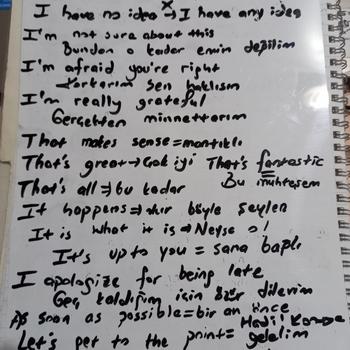 I have no idea → I have any idea
I'm not sure about this
Bundan o kadar emin değilim
I'm afraid you're right
Korkarım sen haklısın
I'm really grateful
Gerçekten minnettarım
That makes sense = mantıklı
That's great → Çok iyi That's fantastic =
That's all ⇒ bu kadar Bu muhteşem
It happens ⇒ böyle şeyler
It is what it is ⇒ Neyse o!
It's up to you = sana bağlı
I apologize for being late
Geç kaldığım için özür dilerim
As soon as possible = bir an önce
Let's get to the point = Hadi gelelim